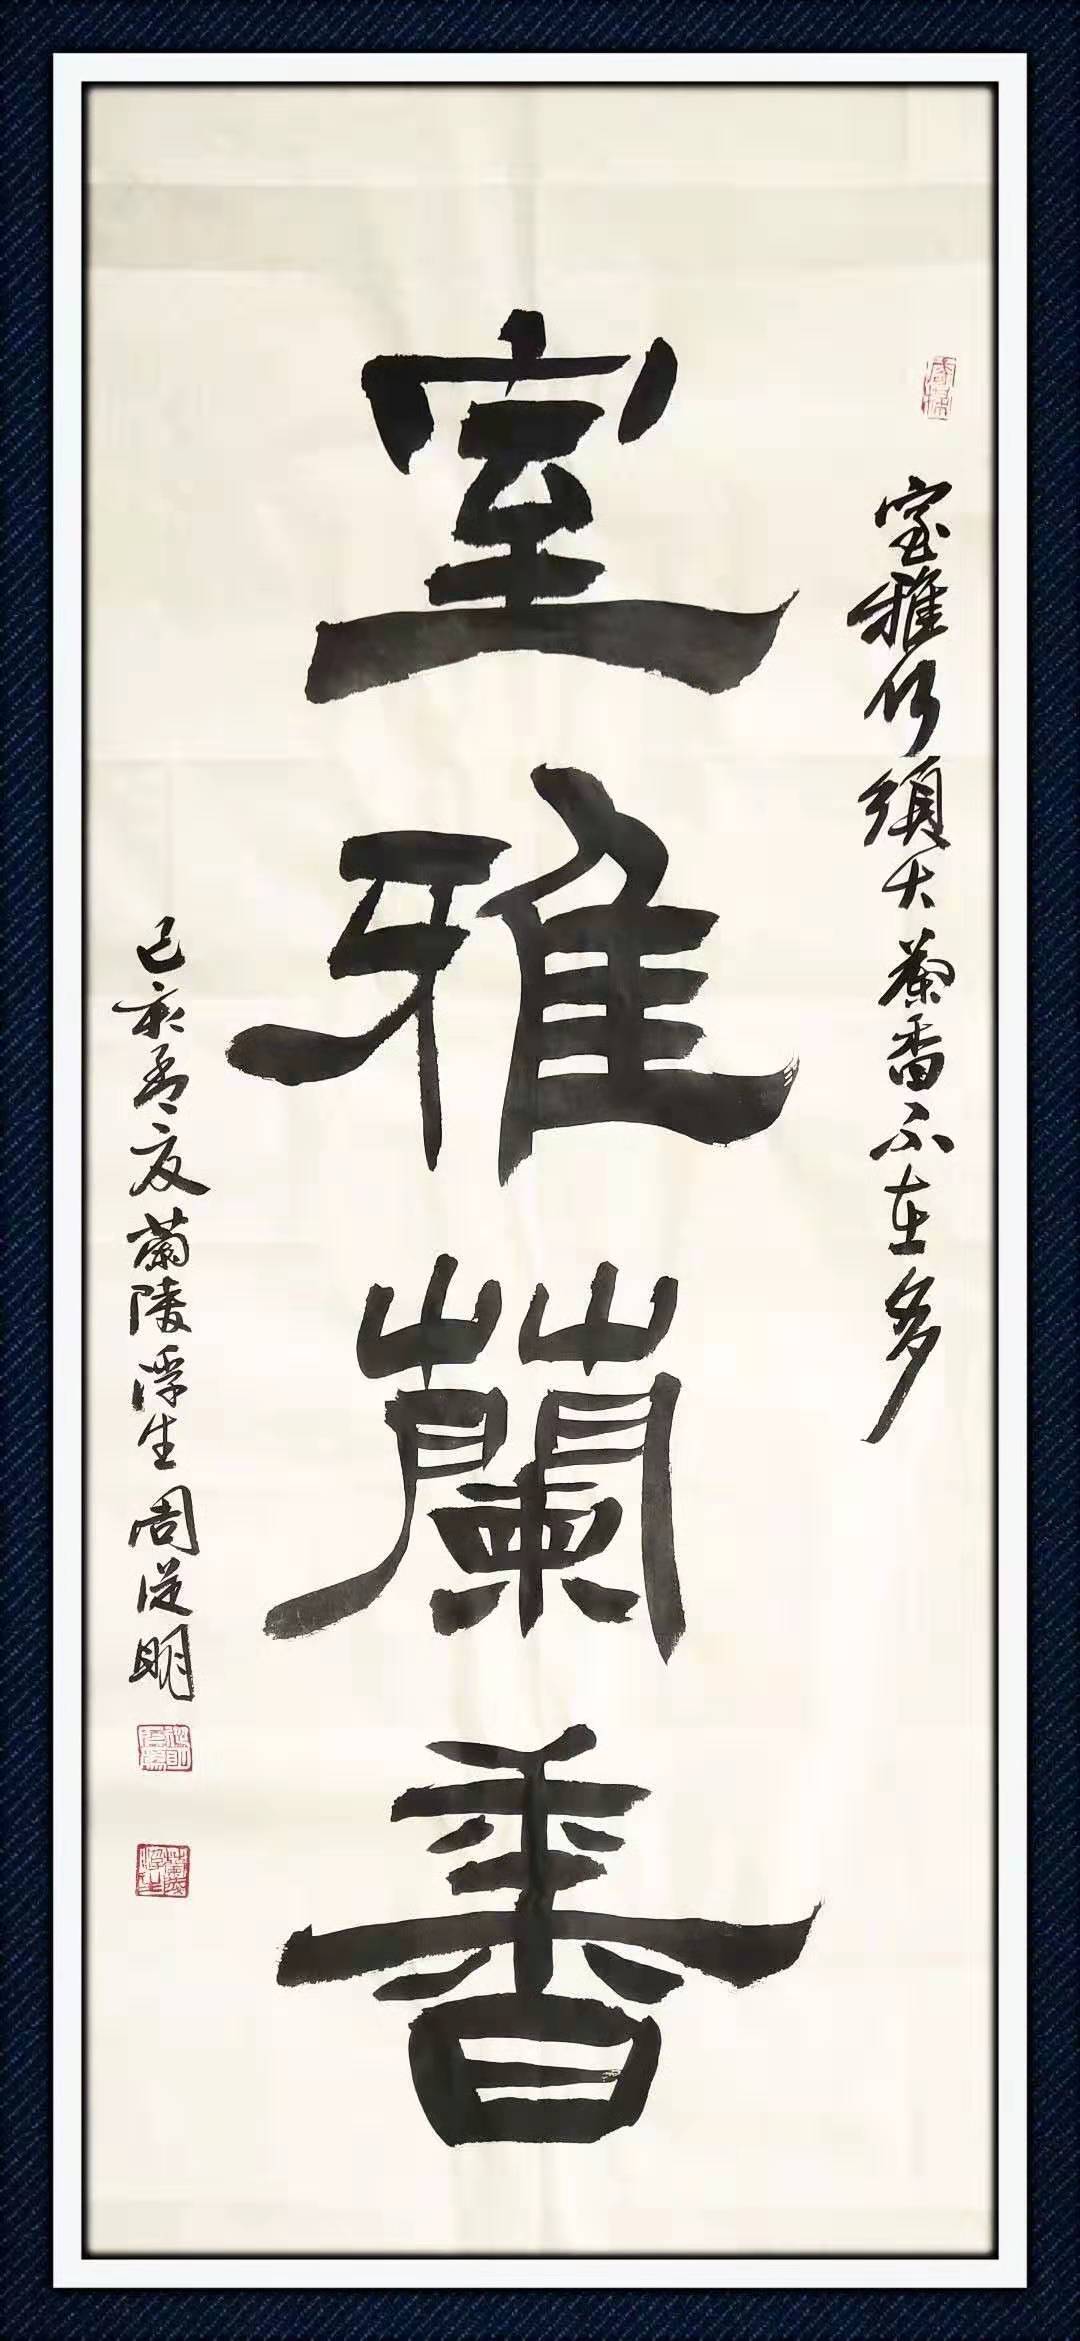 室雅何須大蘭香不在多
室雅蘭香
己亥孟夏蘭陵浮生周從明